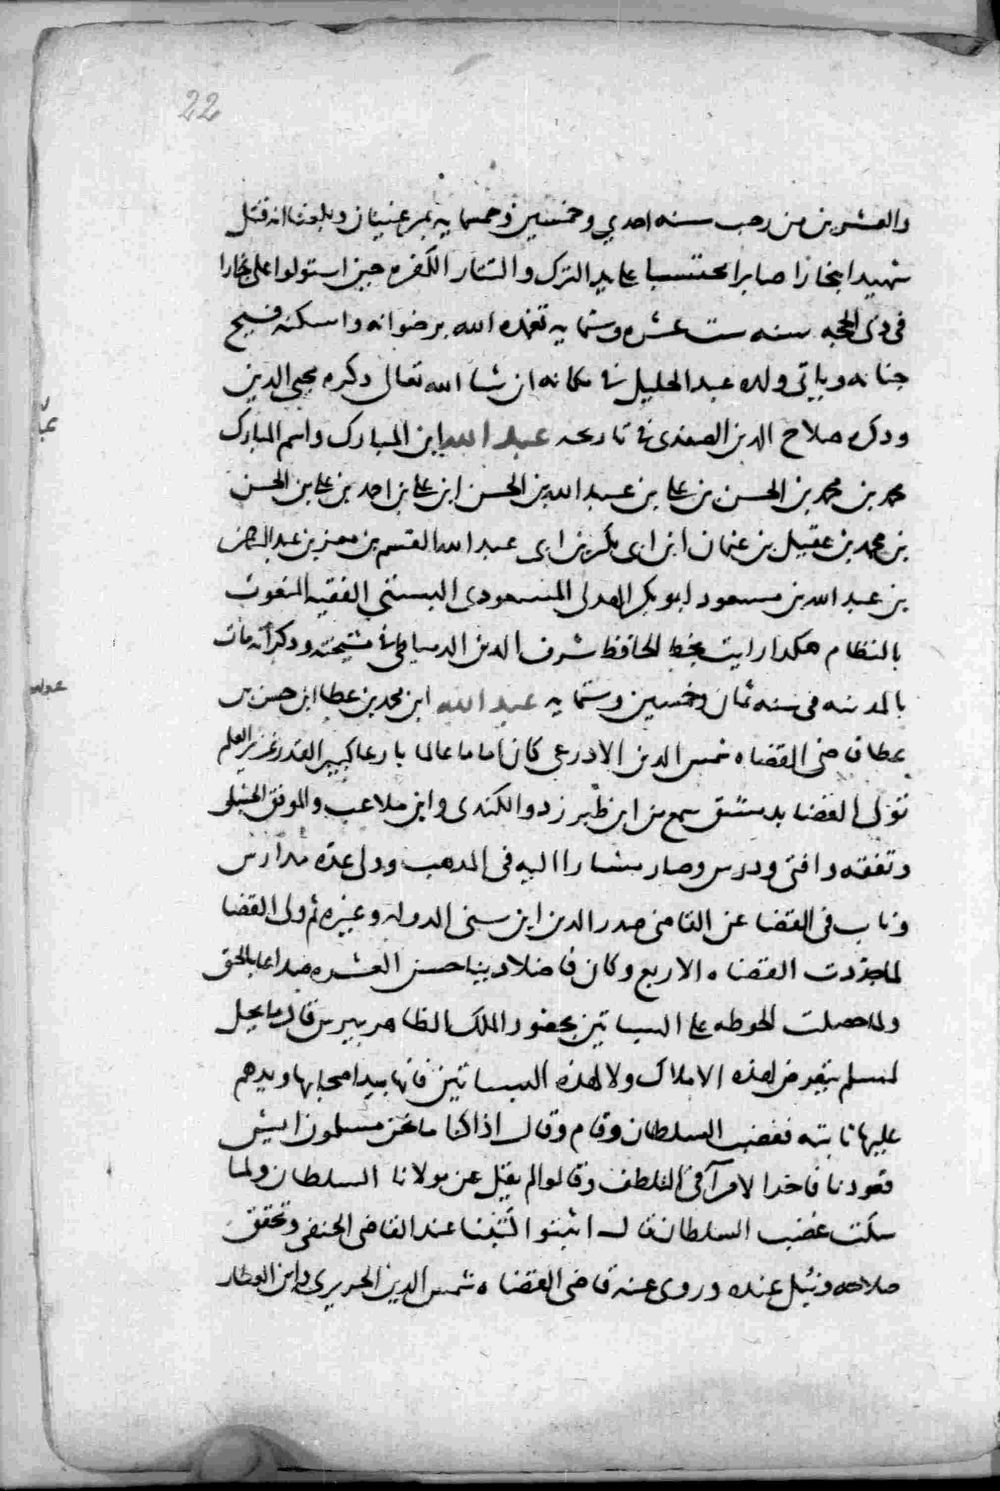 22
والعشرين من رجب سنه احدي وخمسين وخمسمايه بمرغينان وبلغنا انه قتل
شهيدا ببخارا صابرا محتسبا على يد الترك والتتار الكفره حين استولوا على بخارا
فى ذى الحجه سنه ست عشره وستمايه تغمده الله برضوانه واسكنه فسيح
جنانه وياتى ولده عبد الجليل فى مكانه ان شا الله تعالى ذكره محيى الدين
وذكره صلاح الدين الصفدى فى تاريخه عبد الله ابن المبارك واسم المبارك
محمد بن محمد بن الحسن بن على بن عبد الله بن الحسن ابن على بن احمد بن على بن الحسن
بن محمد بن عقيل بن عثمان ابن ابى بكر بن ابى عبد الله القسم بن معن بن عبد الرحمن
بن عبد الله بن مسعود ابو بكر الهدلى المسعودى البستنى الفقيه المنعوت
بالنظام هكذا رايت بخط الحافظ شرف الدين الدمياطى فى مشيخته وذكر انه مات
بالمدينه فى سنه ثمان وخمسين وستمايه عبد الله ابن محمد بن عطا ابن حسن بن
عطا قاضى القضاه شمس الدين الاذرعى كان اماما عالما بارعا كبير القدر غزير العلم
تولى القضا بدمشق سمع من ابن طبرزد والكندى وابن ملاعب والموفق الحنبلى
وتفقه وافتى ودرس وصار مشارا اليه فى المذهب وولى عدة مدارس
وناب فى القضا عن القاضى صدر الدين ابن سنى الدوله وغيره ثم ولى القضا
لما جددت القضاه الاربع وكان فاضلا دينا حسن العشره صداعا بالحق
ولما حصلت الحوطه على البساتين بحضور الملك الظاهر بيبرس قال ما يحل
لمسلم يتعرض لهذه الاملاك ولا لهذه البساتين فانها بيد اصحابها ويدهم
عليها ثابته فغضب السلطان وقام وقال اذا كنا ما نحن مسلمون ايش
قعودنا فاخذ الامرآ فى التلطف وقالوا لم يقل عن مولانا السلطان ولما
سكت غضب السلطان قال اثبتوا كتبنا عند القاضى الحنفى وتحقق
صلاحه ونبل عنده وروى عنه قاضى القضاه شمس الدين الحريرى وابن العطار